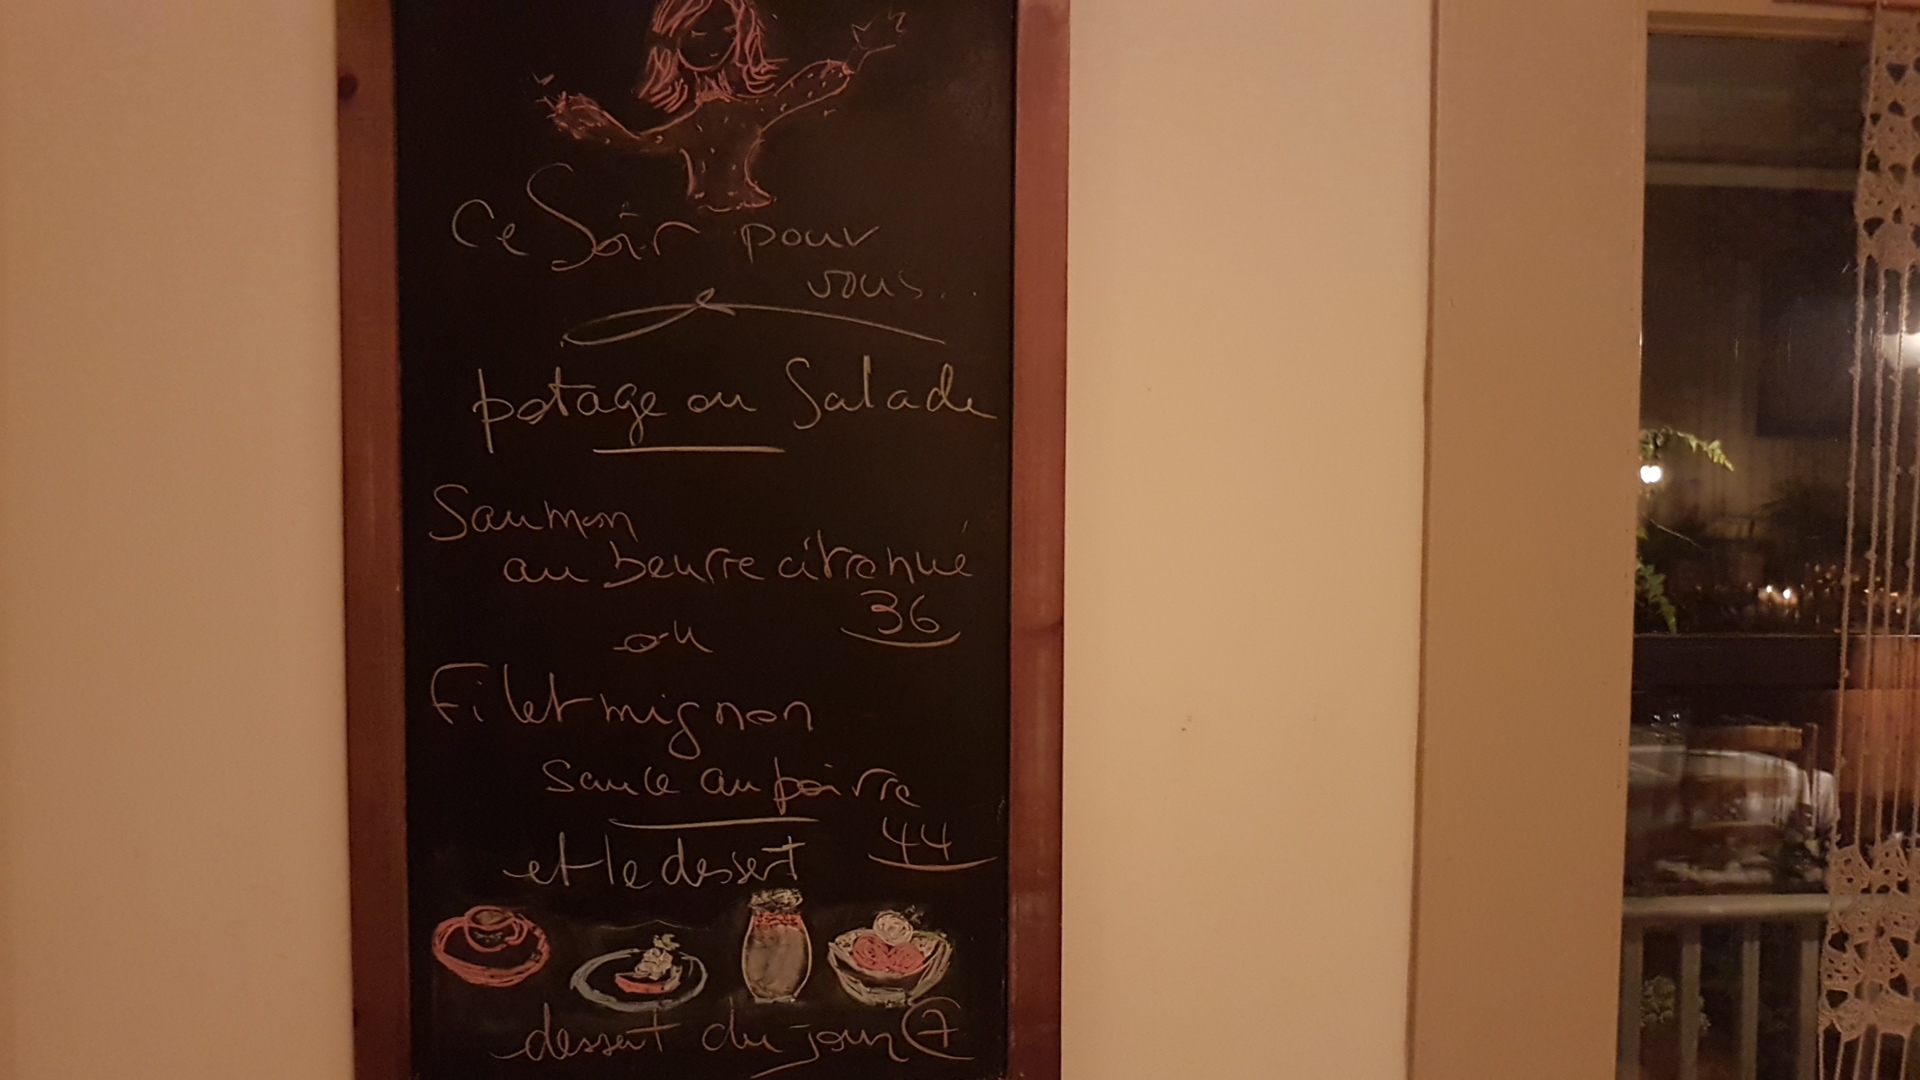 Ce Soir pour
vous...
potage ou Salade
Saumon
au beurre citronné
36
ou
Filet mignon
sauce au poivre
44
et le dessert
dessert du jour 7